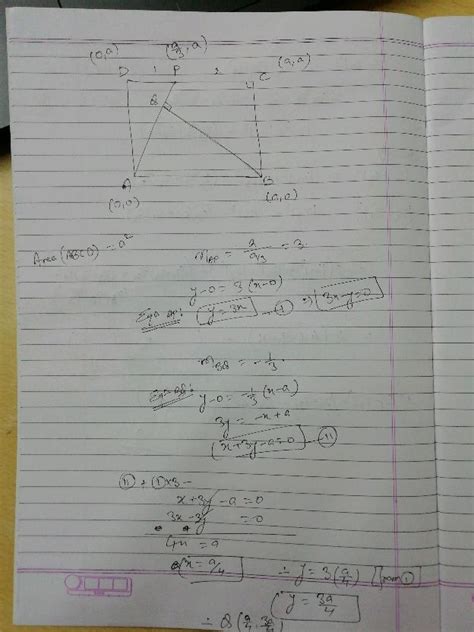 (0,a) (a/3, a) (a,a)
D 1 P 2 C
Q
A B
(0,0) (a,0)
Area (ABCD) = a²
m_AP = a / a/3 = 3
y-0 = 3(x-0)
Eqn AP: y = 3x — (I) ⇒ 3x-y=0
m_BQ = -1/3
Eqn QB: y-0 = -1/3 (x-a)
3y = -x+a
x+3y-a=0 — (II)
(II) + (I)×3 -
x+3y-a=0
3x-3y =0
4x = a
x = a/4 ∴ y = 3(a/4) [from (I)]
y = 3a/4
∴ Q (a/4, 3a/4)